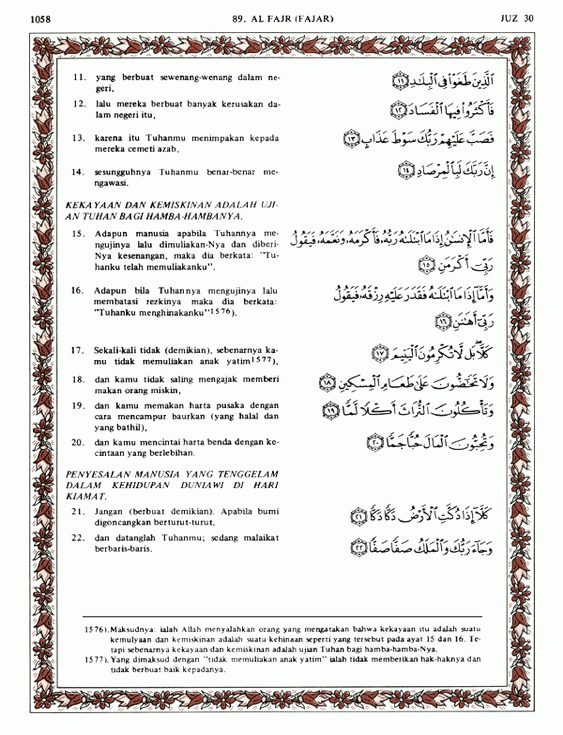 1058
89. AL FAJR (FAJAR)
JUZ 30
11. yang berbuat sewenang-wenang dalam ne-
geri,
ٱلَّذِينَ طَغَوْا۟ فِى ٱلْبِلَٰدِ ١١
12. lalu mereka berbuat banyak kerusakan da-
lam negeri itu,
فَأَكْثَرُوا۟ فِيهَا ٱلْفَسَادَ ١٢
13. karena itu Tuhanmu menimpakan kepada
mereka cemeti azab,
فَصَبَّ عَلَيْهِمْ رَبُّكَ سَوْطَ عَذَابٍ ١٣
14. sesungguhnya Tuhanmu benar-benar me-
ngawasi.
إِنَّ رَبَّكَ لَبِٱلْمِرْصَادِ ١٤
KEKAYAAN DAN KEMISKINAN ADALAH UJI-
AN TUHAN BAGI HAMBA-HAMBANYA.
15. Adapun manusia apabila Tuhannya me-
ngujinya lalu dimuliakan-Nya dan diberi-
Nya kesenangan, maka dia berkata: "Tu-
hanku telah memuliakanku".
فَأَمَّا ٱلْإِنسَٰنُ إِذَا مَا ٱبْتَلَىٰهُ رَبُّهُۥ فَأَكْرَمَهُۥ وَنَعَّمَهُۥ فَيَقُولُ
رَبِّىٓ أَكْرَمَنِ ١٥
16. Adapun bila Tuhannya mengujinya lalu
membatasi rezkinya maka dia berkata:
"Tuhanku menghinakanku"1576).
وَأَمَّآ إِذَا مَا ٱبْتَلَىٰهُ فَقَدَرَ عَلَيْهِ رِزْقَهُۥ فَيَقُولُ
رَبِّىٓ أَهَٰنَنِ ١٦
17. Sekali-kali tidak (demikian), sebenarnya ka-
mu tidak memuliakan anak yatim1577),
كَلَّا بَل لَّا تُكْرِمُونَ ٱلْيَتِيمَ ١٧
18. dan kamu tidak saling mengajak memberi
makan orang miskin,
وَلَا تَحَٰٓضُّونَ عَلَىٰ طَعَامِ ٱلْمِسْكِينِ ١٨
19. dan kamu memakan harta pusaka dengan
cara mencampur baurkan (yang halal dan
yang bathil),
وَتَأْكُلُونَ ٱلتُّرَاثَ أَكْلًا لَّمًّا ١٩
20. dan kamu mencintai harta benda dengan ke-
cintaan yang berlebihan.
وَتُحِبُّونَ ٱلْمَالَ حُبًّا جَمًّا ٢٠
PENYESALAN MANUSIA YANG TENGGELAM
DALAM KEHIDUPAN DUNIAWI DI HARI
KIAMAT.
21. Jangan (berbuat demikian). Apabila bumi
digoncangkan berturut-turut,
كَلَّآ إِذَا دُكَّتِ ٱلْأَرْضُ دَكًّا دَكًّا ٢١
22. dan datanglah Tuhanmu; sedang malaikat
berbaris-baris.
وَجَآءَ رَبُّكَ وَٱلْمَلَكُ صَفًّا صَفًّا ٢٢
1576). Maksudnya: ialah Allah menyalahkan orang yang mengatakan bahwa kekayaan itu adalah suatu
kemulyaan dan kemiskinan adalah suatu kehinaan seperti yang tersebut pada ayat 15 dan 16. Te-
tapi sebenarnya kekayaan dan kemiskinan adalah ujian Tuhan bagi hamba-hamba-Nya.
1577). Yang dimaksud dengan "tidak memuliakan anak yatim" ialah tidak memberikan hak-haknya dan
tidak berbuat baik kepadanya.